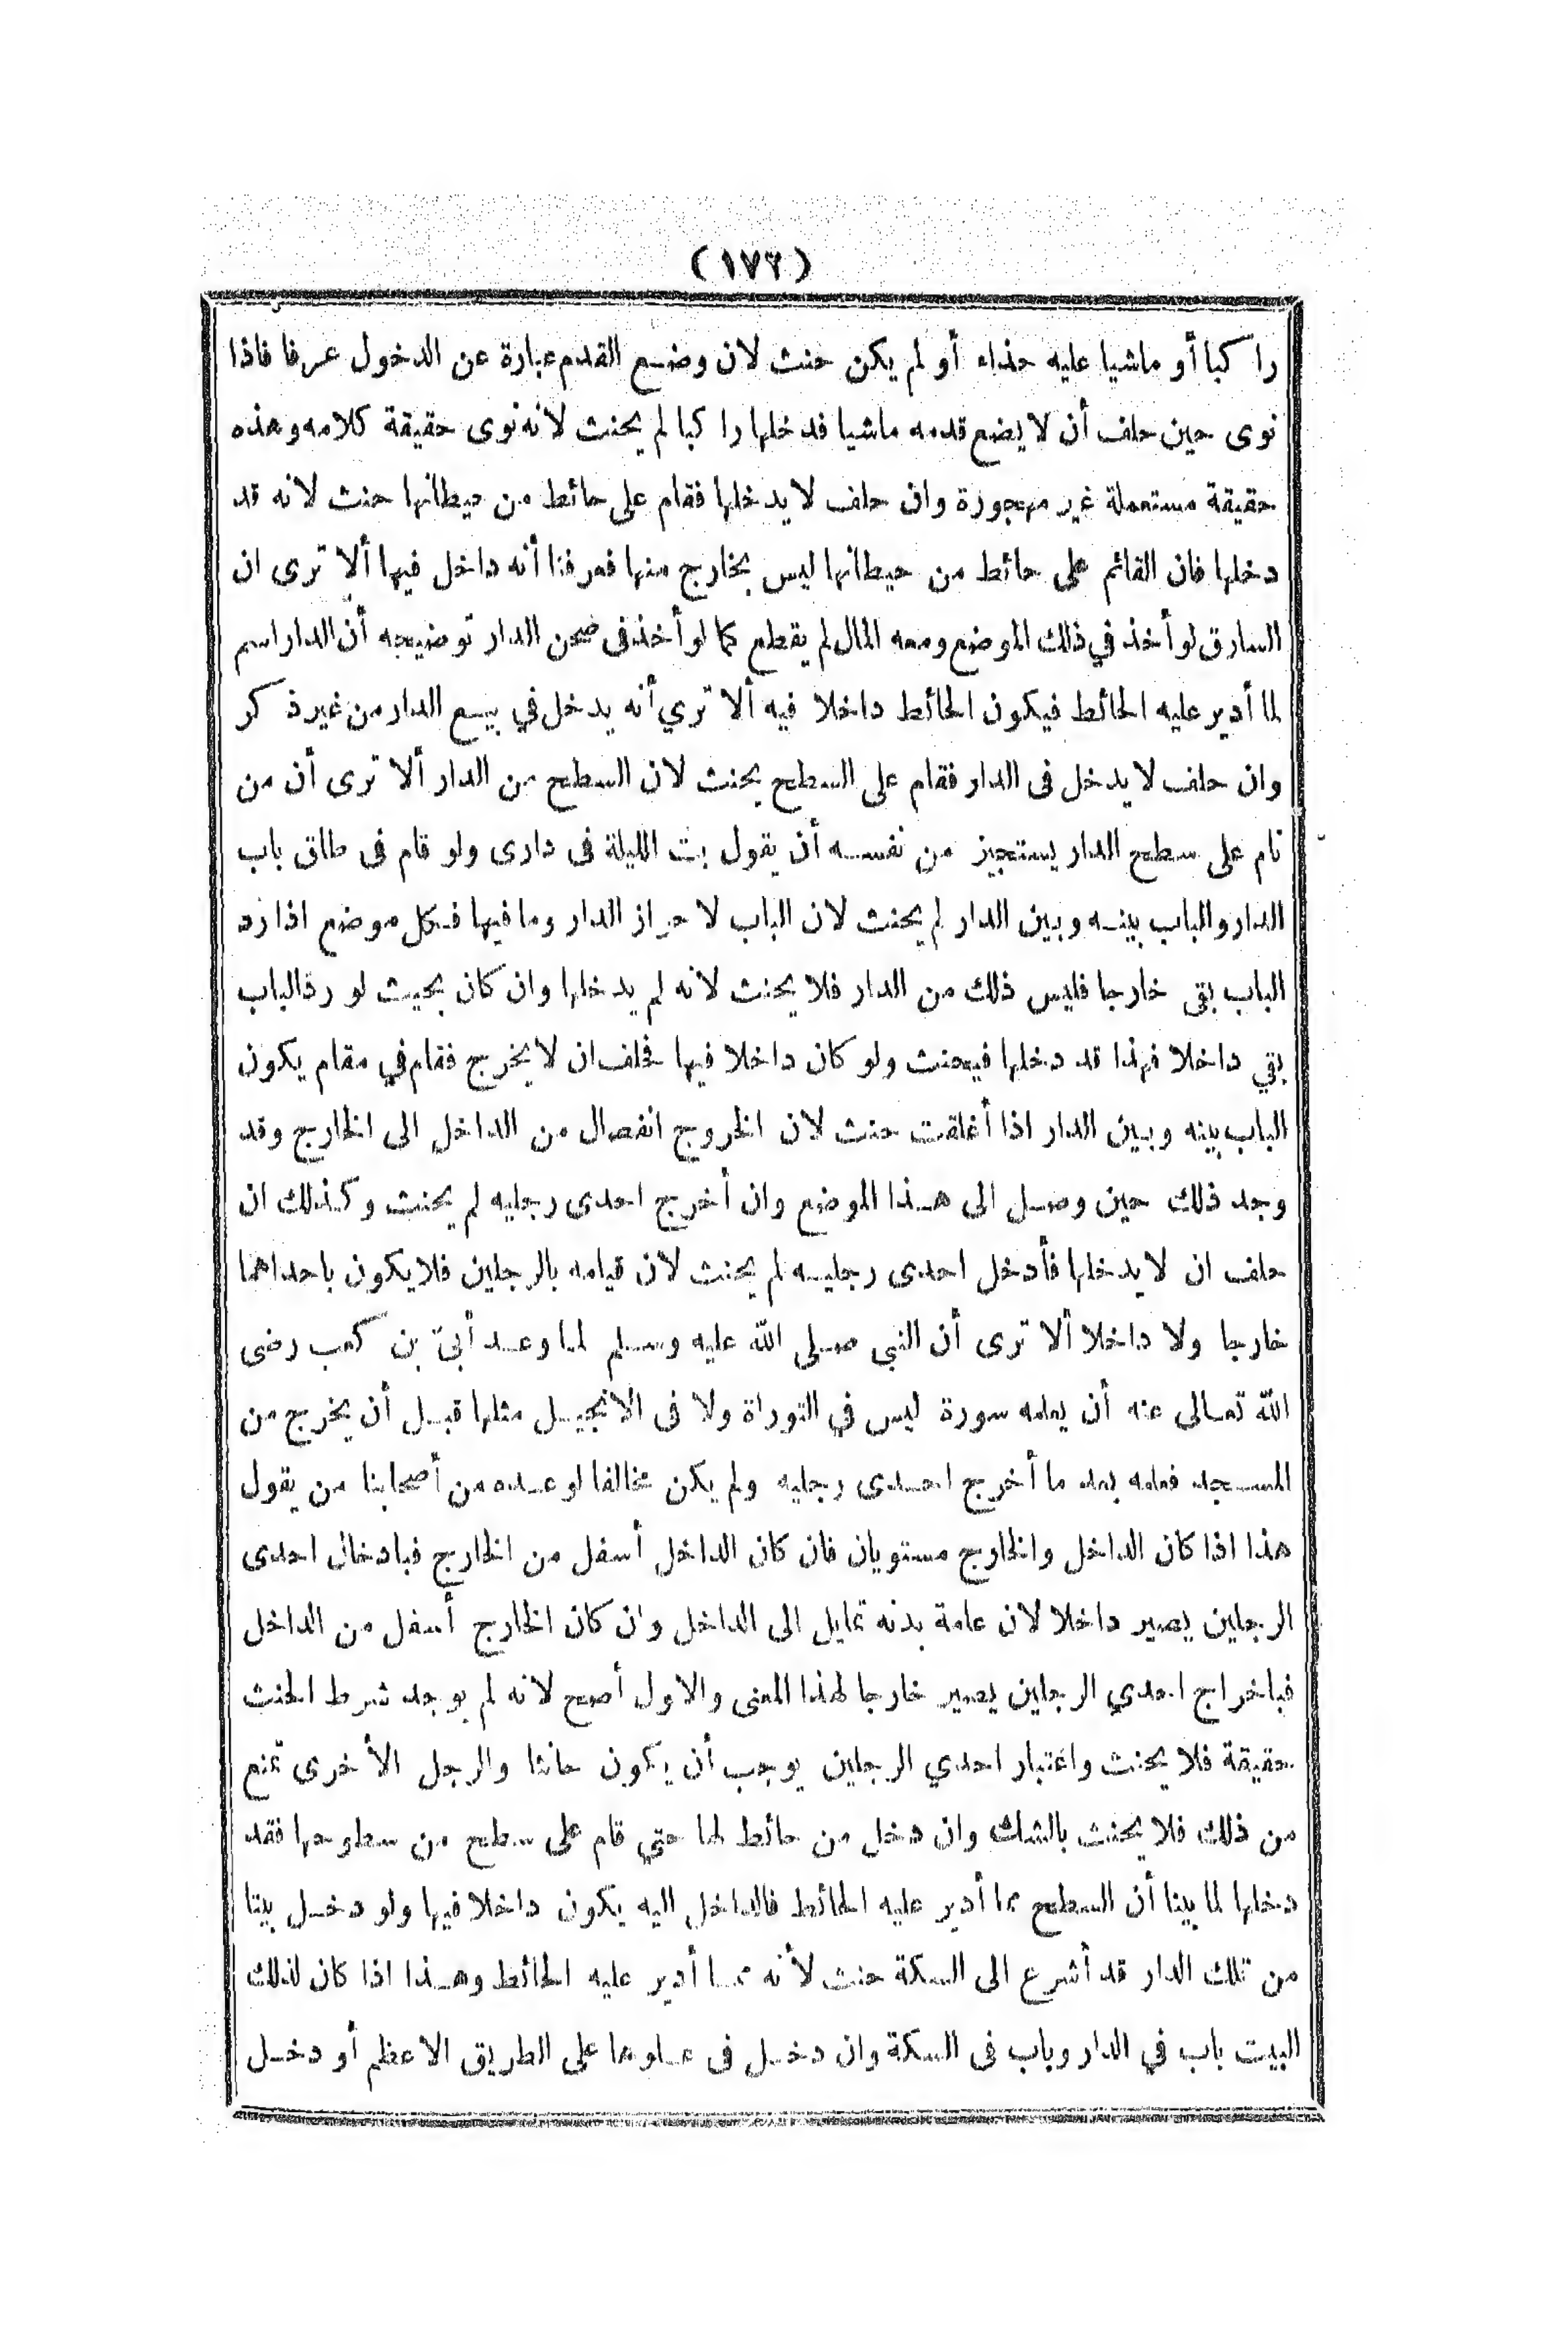 (١٧٢)
راكبا أو ماشيا عليه حذاء أو لم يكن حنث لان وضع القدم عبارة عن الدخول عرفا فاذا
نوى حين حلف أن لا يضع قدمه ماشيا فدخلها راكبا لم يحنث لانه نوى حقيقة كلامه وهذه
حقيقة مستعملة غير مهجورة وان حلف لا يدخلها فقام على حائط من حيطانها حنث لانه قد
دخلها فان القائم على حائط من حيطانها ليس بخارج منها فعرفنا أنه داخل فيها ألا ترى ان
السارق لو أخذ في ذلك الموضع ومعه المال لم يقطع كما لو أخذ فى صحن الدار توضيحه أن الدار اسم
لما أدير عليه الحائط فيكون الحائط داخلا فيه ألا تري أنه يدخل في بيع الدار من غير ذكر
وان حلف لا يدخل فى الدار فقام على السطح يحنث لان السطح من الدار ألا ترى أن من
نام على سطح الدار يستجيز من نفسه أن يقول بت الليلة فى دارى ولو قام فى طاق باب
الدار والباب بينه وبين الدار لم يحنث لان الباب لاحراز الدار وما فيها فكل موضع اذا رد
الباب بقى خارجا فليس ذلك من الدار فلا يحنث لانه لم يدخلها وان كان بحيث لو رد الباب
بقي داخلا فهذا قد دخلها فيحنث ولو كان داخلا فيها فحلف ان لا يخرج فقام في مقام يكون
الباب بينه وبين الدار اذا أغلقت حنث لان الخروج انفصال من الداخل الى الخارج وقد
وجد ذلك حين وصل الى هذا الموضع وان أخرج احدى رجليه لم يحنث وكذلك ان
حلف ان لا يدخلها فأدخل احدى رجليه لم يحنث لان قيامه بالرجلين فلا يكون باحداهما
خارجا ولا داخلا ألا ترى أن النبي صلى الله عليه وسلم لما وعد أبىّ بن كعب رضى
الله تعالى عنه أن يعلمه سورة ليس في التوراة ولا فى الانجيل مثلها قبل أن يخرج من
المسجد فعلمه بعد ما أخرج احدى رجليه ولم يكن مخالفا لوعده من أصحابنا من يقول
هذا اذا كان الداخل والخارج مستويان فان كان الداخل أسفل من الخارج فبادخال احدى
الرجلين يصير داخلا لان عامة بدنه تمايل الى الداخل وان كان الخارج أسفل من الداخل
فباخراج احدي الرجلين يصير خارجا لهذا المعنى والاول أصح لانه لم يوجد شرط الحنث
حقيقة فلا يحنث واعتبار احدي الرجلين يوجب أن يكون حانثا والرجل الأخرى تمنع
من ذلك فلا يحنث بالشك وان دخل من حائط لها حتي قام على سطح من سطوحها فقد
دخلها لما بينا أن السطح مما أدير عليه الحائط فالداخل اليه يكون داخلا فيها ولو دخل بيتا
من تلك الدار قد أشرع الى السكة حنث لأنه مما أدير عليه الحائط وهذا اذا كان لذلك
البيت باب في الدار وباب فى السكة وان دخل فى علوها على الطريق الاعظم أو دخل